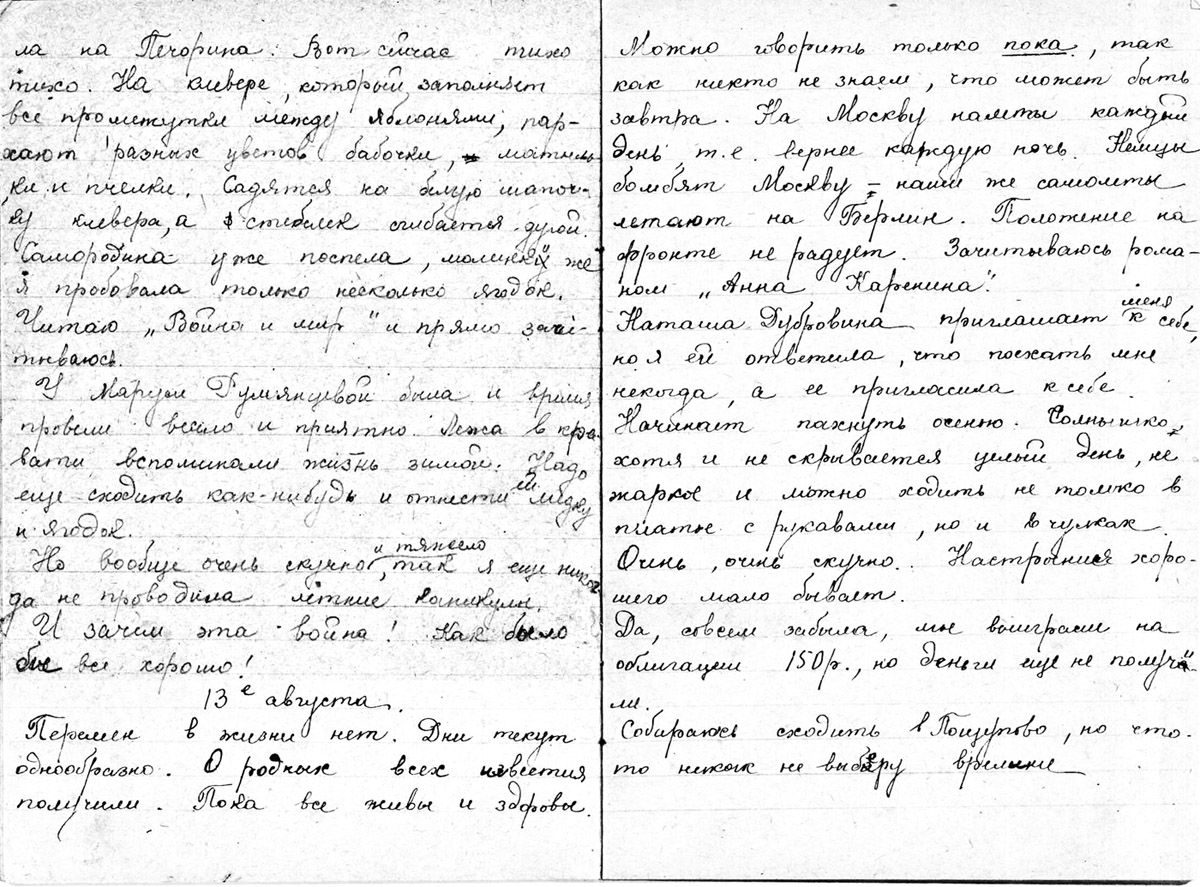 ла на Печорина. Вот сейчас тихо
тихо. На клевере, который заполняет
все промежутки между яблонями, пар-
хают разных цветов бабочки, мотыль-
ки и пчелки. Садятся на белую шапоч-
ку клевера, а стебелек сгибается дугой.
Самородина уже поспела, малинки же
я пробовала только несколько ягодок.
Читаю „Война и мир" и прямо зачи-
тываюсь.
У Маруси Румянцевой была и время
провели весело и приятно. Лежа в кро-
вати, вспоминали жизнь зимой. Надо
еще сходить как-нибудь и отнести ей медку
и ягодок.
Но вообще очень скучно и тяжело, так я еще никог
да не проводила летние каникулы.
И зачем эта война! Как было
бы все хорошо!
13е августа.
Перемен в жизни нет. Дни текут
однообразно. О родных всех известия
получили. Пока все живы и здоровы.
Можно говорить только пока, так
как никто не знаем, что может быть
завтра. На Москву налеты каждый
день, т.е. вернее каждую ночь. Немцы
бомбят Москву – наши же самолеты
летают на Берлин. Положение на
фронте не радует. Зачитываюсь рома-
ном „Анна Каренина".
Наташа Дубровина приглашает меня к себе,
но я ей ответила, что поехать мне
некогда, а ее пригласила к себе.
Начинает пахнуть осенью. Солнышко,
хотя и не скрывается целый день, не
жаркое и можно ходить не только в
платье с рукавами, но и в чулках.
Очень, очень скучно. Настроения хоро-
шего мало бывает.
Да, совсем забыла, мы выиграли на
облигации 150р., но деньги еще не получи-
ли.
Собираюсь сходить в Пощупово, но что-
то никак не выберу времени